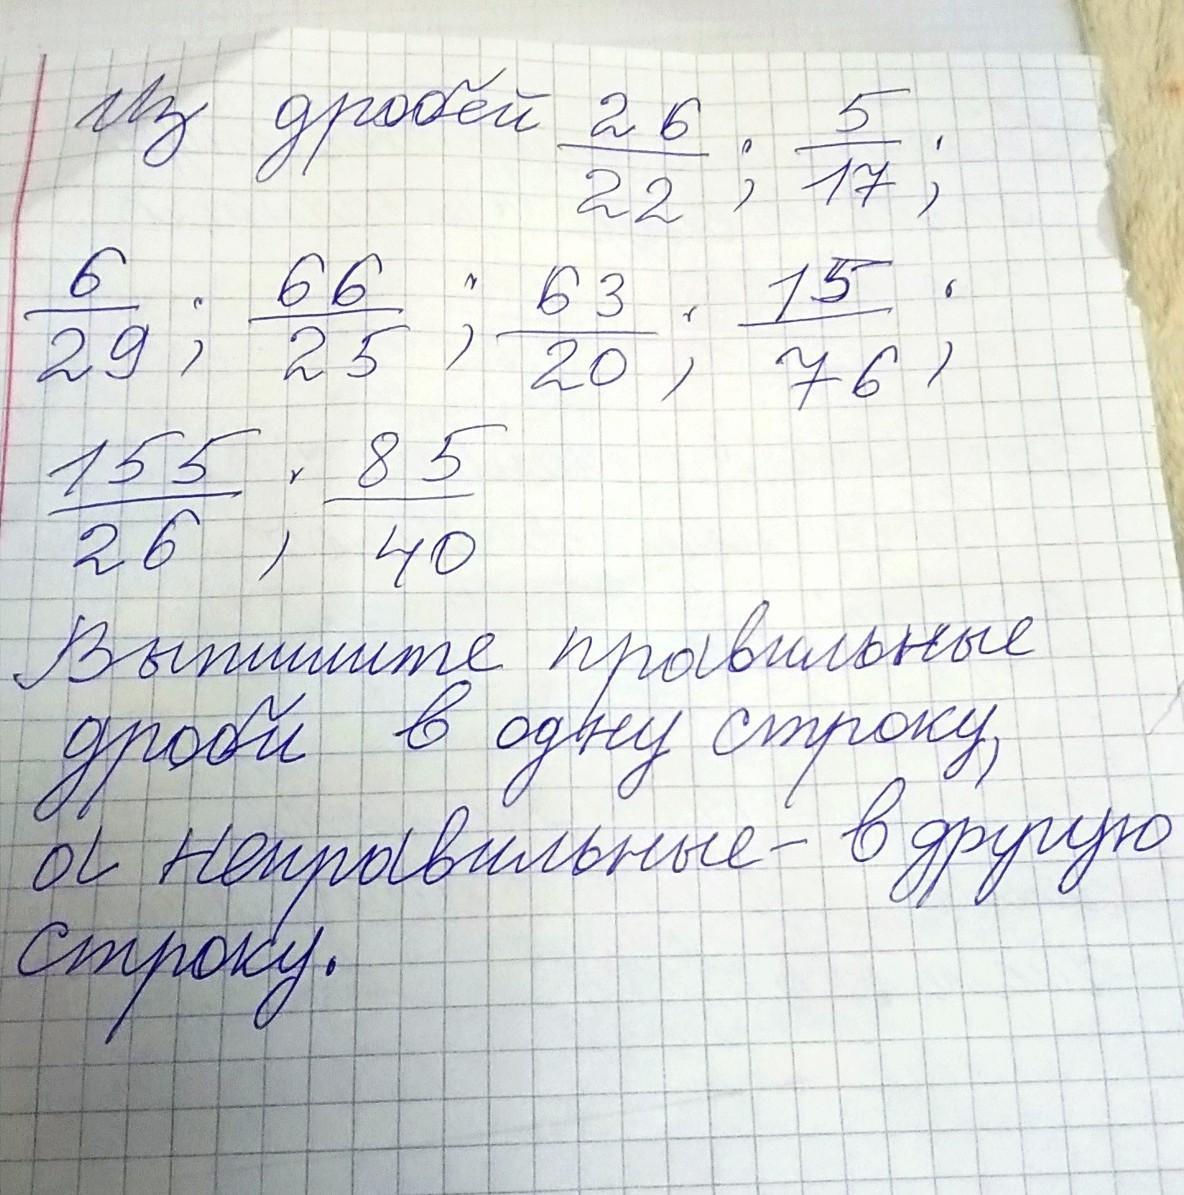 Из дробей 26/22; 5/17;
6/29; 66/25; 63/20; 15/76;
155/26; 85/40
Выпишите правильные
дроби в одну строку,
а неправильные - в другую
строку.